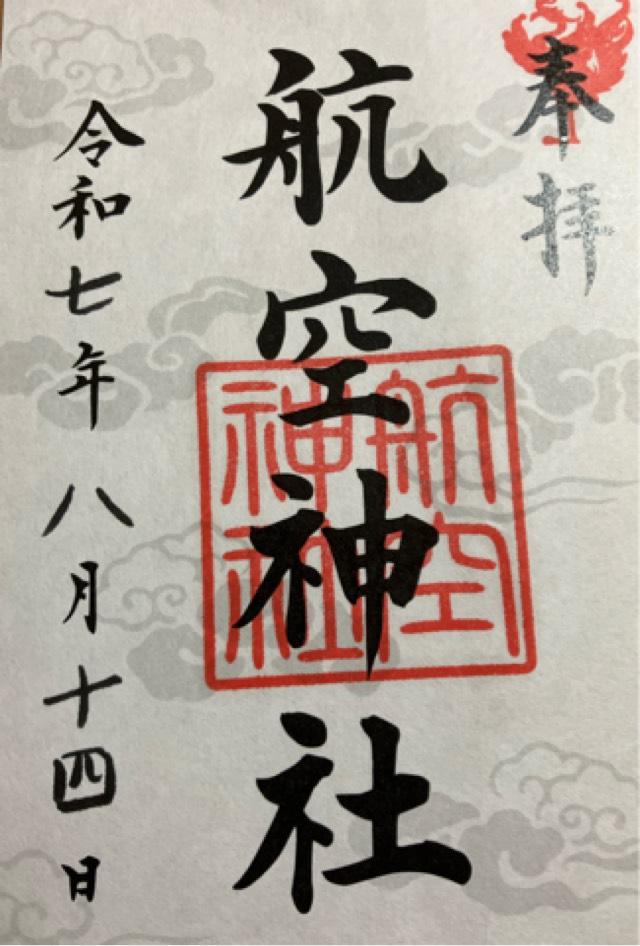 奉拝
航空神社
航空
神社
令和七年 八月十四日